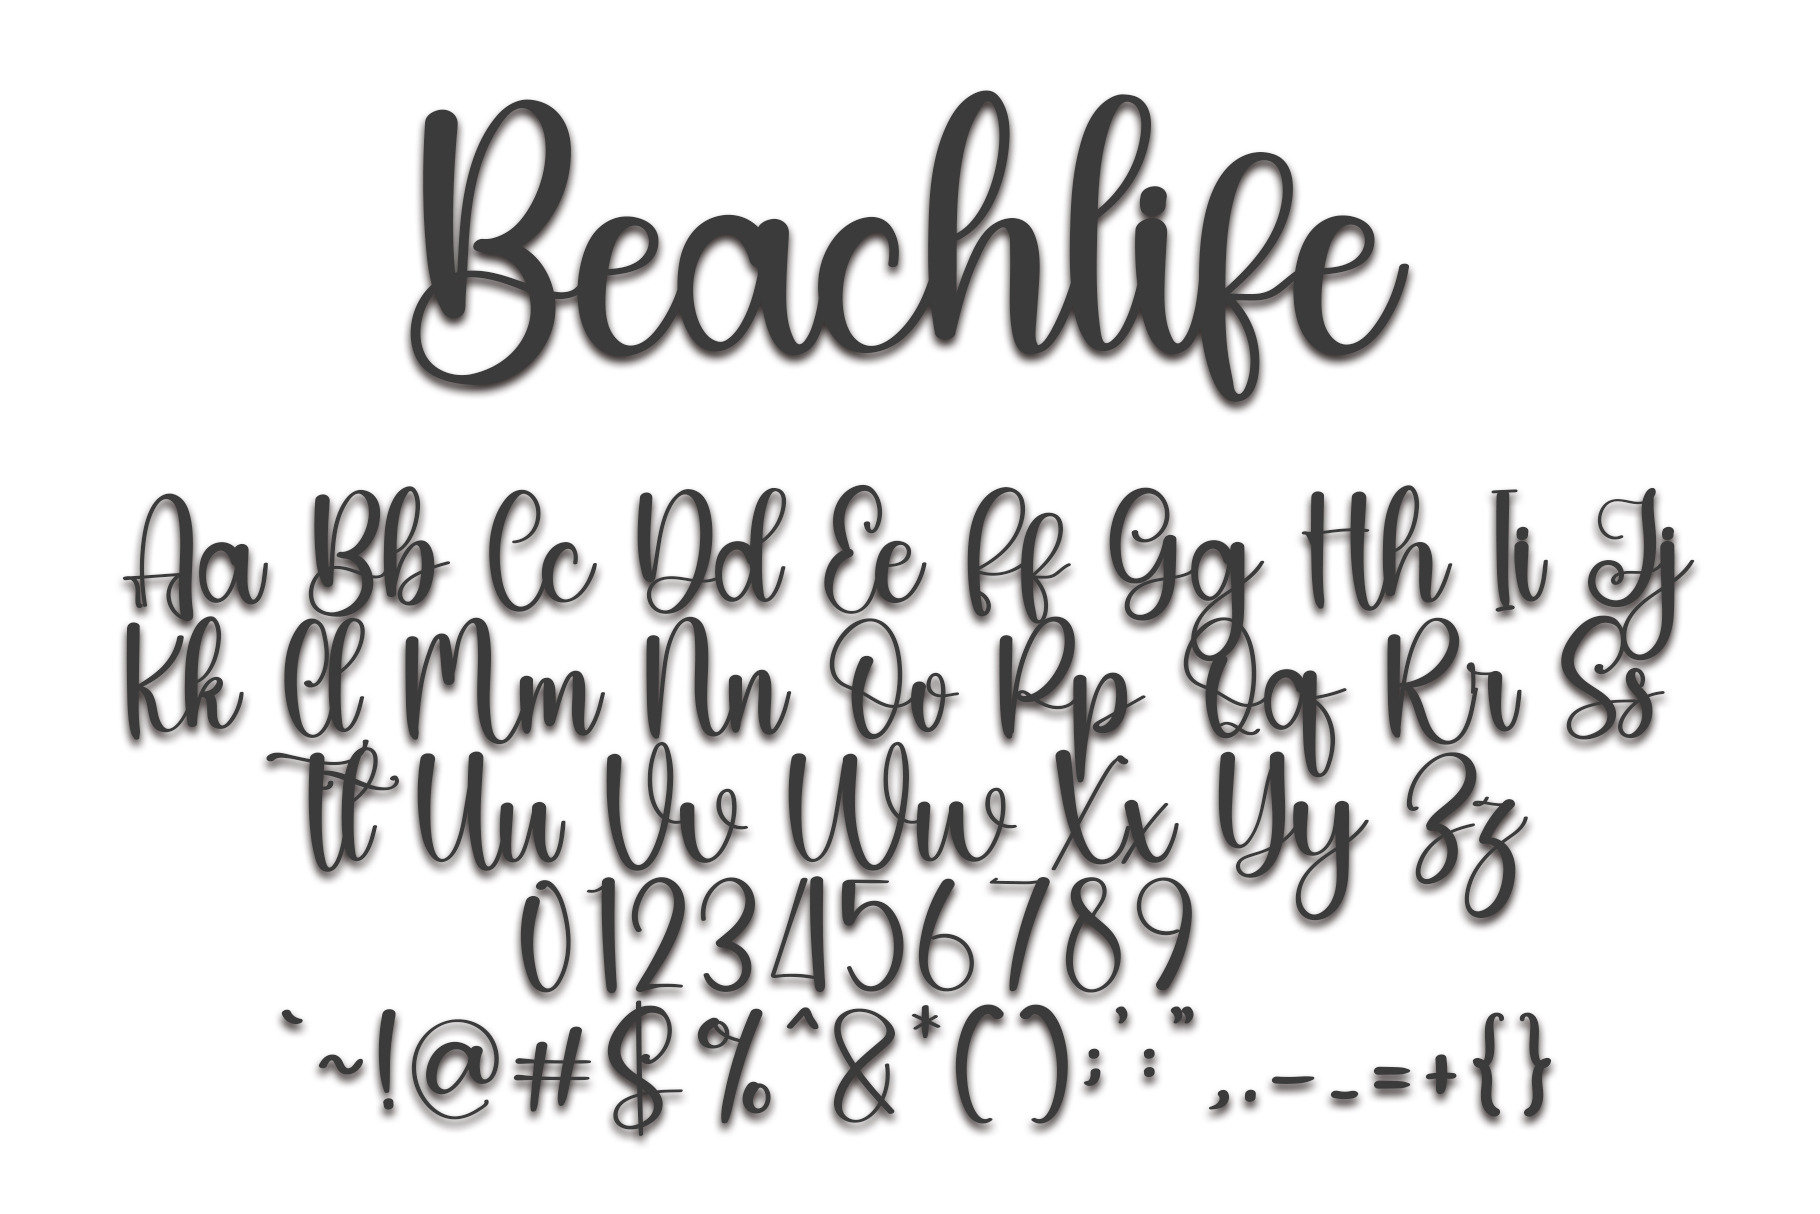 Beachlife
Aa Bb Cc Dd Ee Ff Gg Hh Ii Jj
Kk Ll Mm Nn Oo Pp Qq Rr Ss
Tt Uu Vv Ww Xx Yy Zz
0123456789
`~!@#$%^&*();':",.–_=+{}